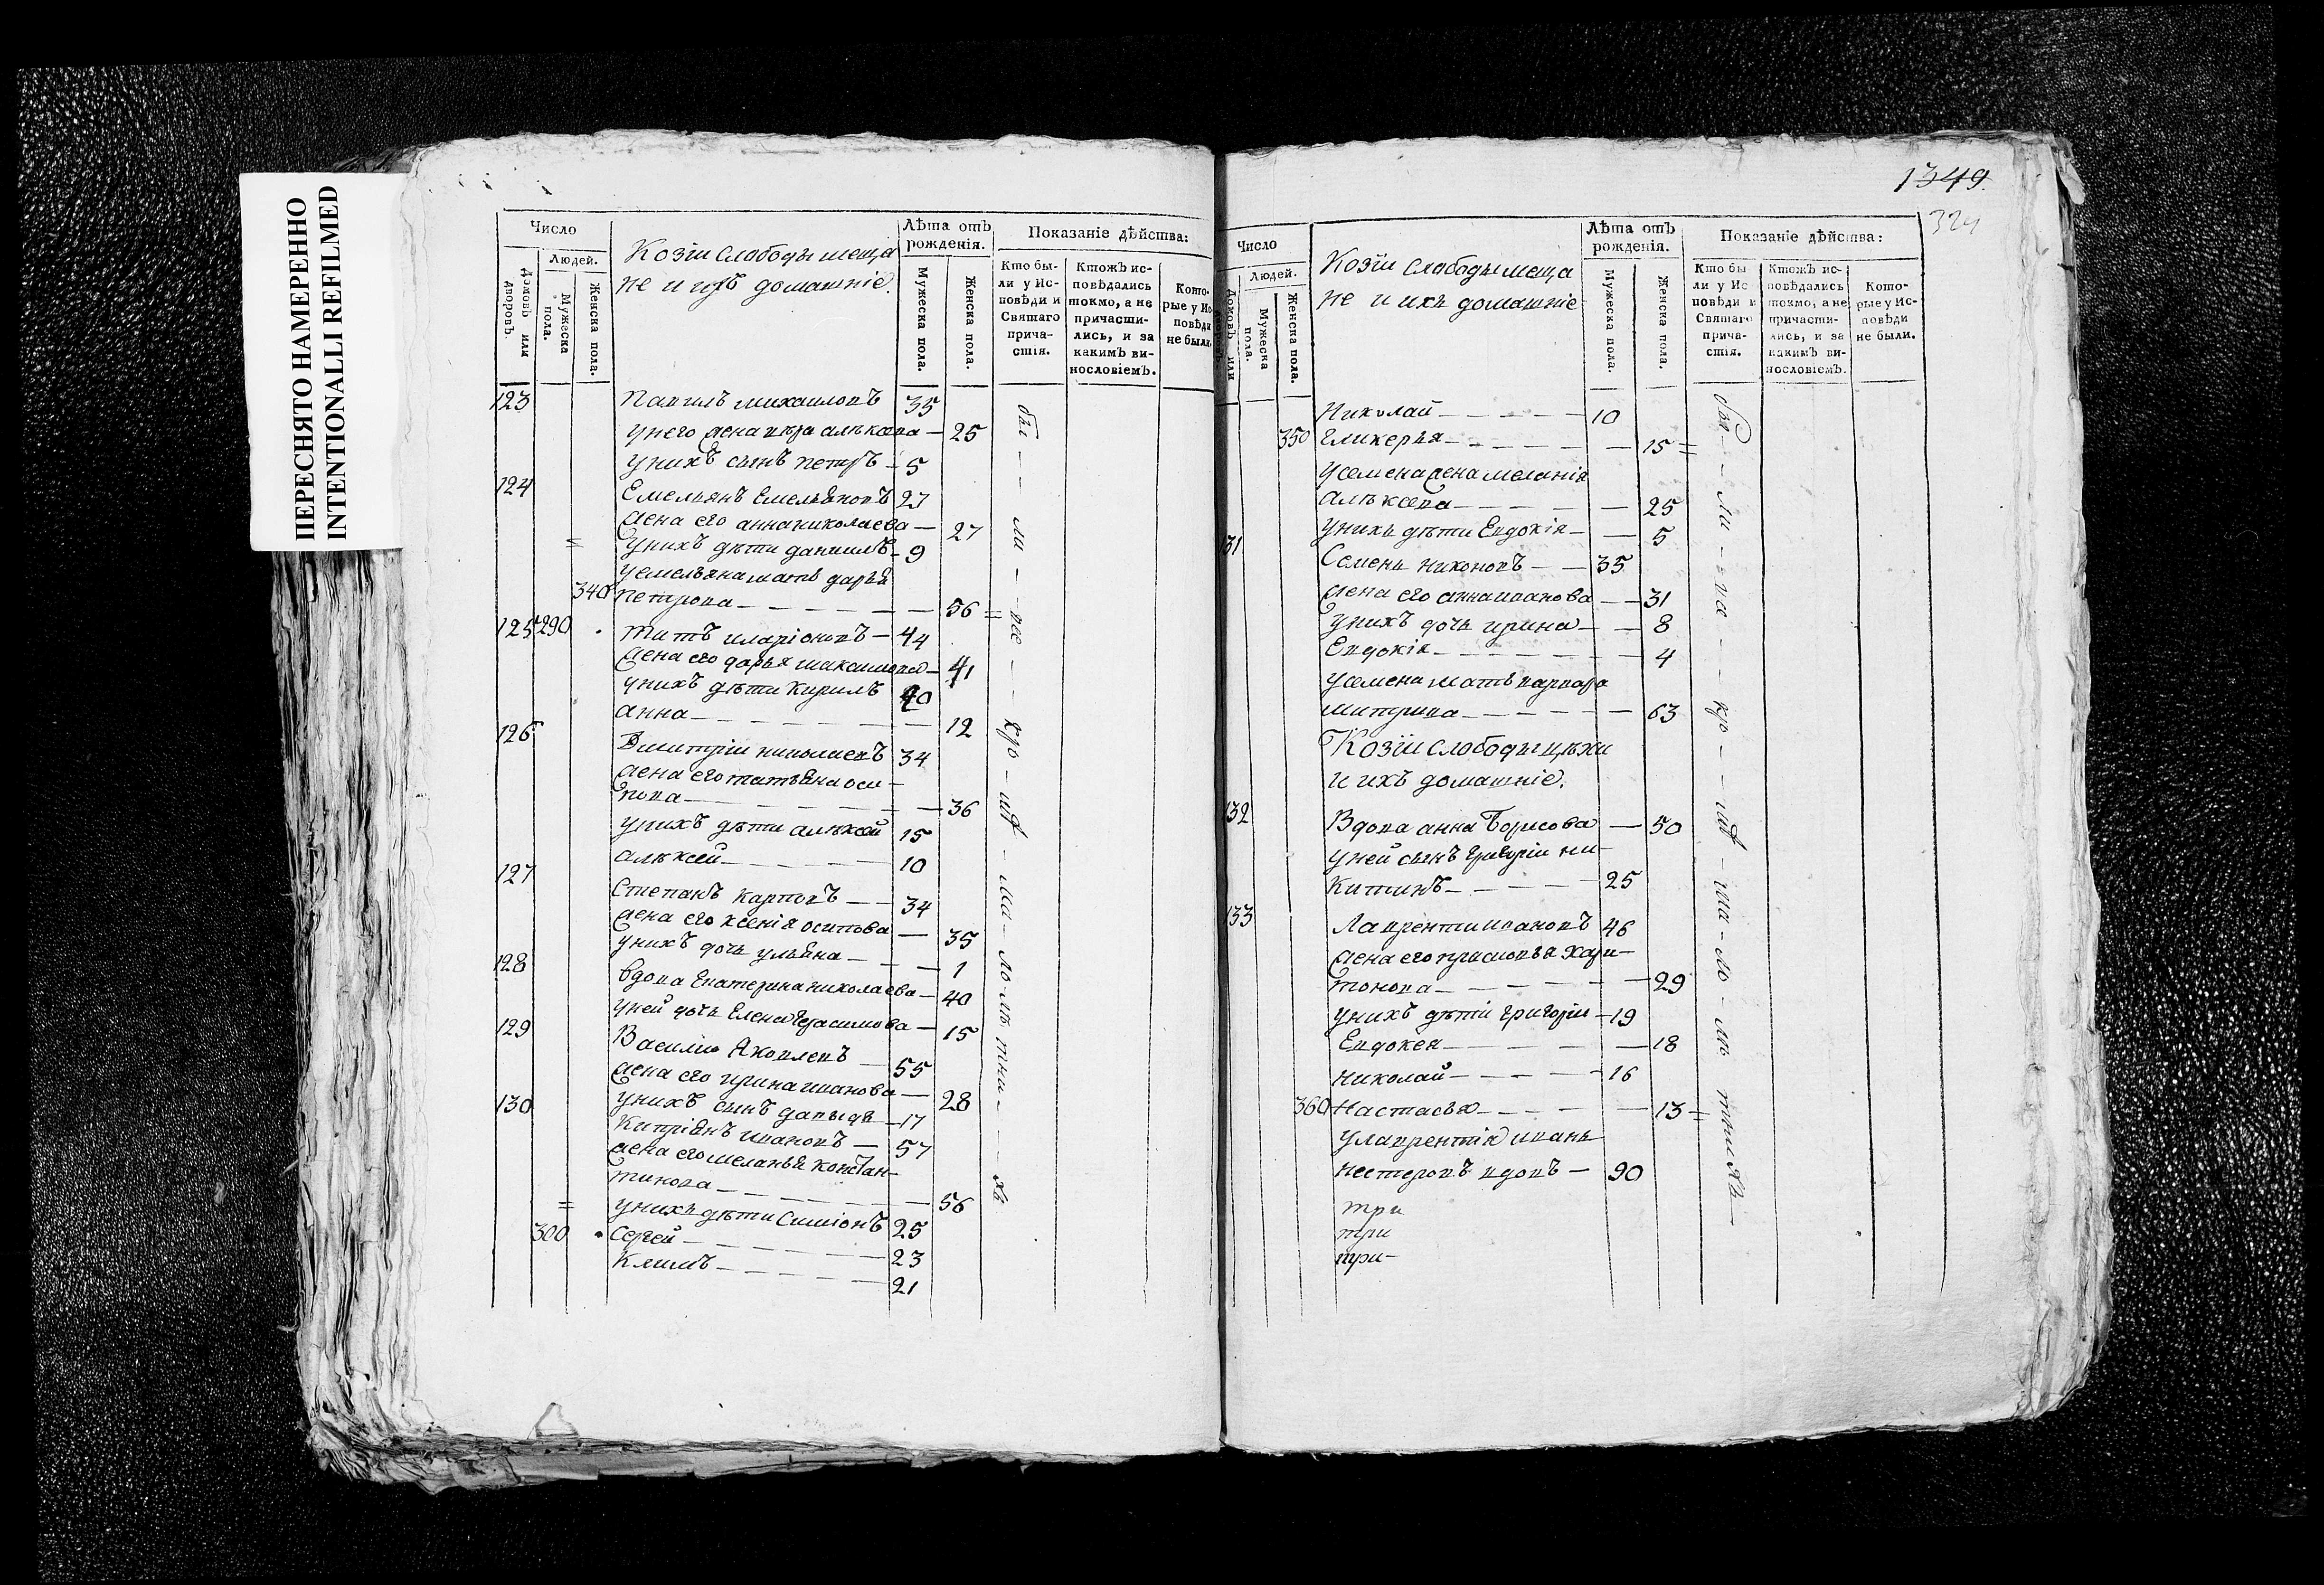 ПЕРЕСНЯТО НАМЕРЕННО
INTENTIONALLI REFILMED
Число
Людей.
Домовъ или дворовъ.
Мужеска пола.
Женска пола.
Козiи слабоды меща
не и ихъ домашнiе.
Лѣта отъ рожденiя.
Мужеска пола.
Женска пола.
Показанiе дѣйства:
Кто бы-
ли у Ис-
повѣди и
Святаго
прича-
стiя.
Ктожъ ис-
повѣдались
токмо, а не
причасти-
лись, и за
какимъ ви-
нословiемъ.
Кото-
рые у Ис-
повѣди
не были.
123 Павилъ михаиловъ 35
унего жена вѣра алѣксева — 25
унихъ сынъ петръ — 5
124 Емельянъ Емельяновъ 27
жена его анна николаева — 27
унихъ дѣти данiилъ — 9
уемельяна мать дарья
340 петрова — 56 =
125 290 титъ иларiоновъ — 44
жена его дарья максимова — 41
унихъ дѣти кирилъ 20
анна — 12
126 Дмитрiи николаевъ 34
жена его татьяна оси-
пова — 36
унихъ дѣти алѣксей 15
алѣксей — 10
127 Степанъ карповъ — 34
жена его ксенiя осипова — 35
унихъ дочь ульяна — 1
128 вдова Екатерина николаева — 40
уней дочь Елена герасимова — 15
129 Василiи Яковлевъ — 55
жена его ирина иванова — 28
унихъ сынъ давыдъ — 17
130 Кипрiянъ ивановъ — 57
жена его меланья констан-
тинова — 56
= унихъ дѣти Симiонъ 25
300 Сергей — 23
Климъ — 21
бы — ли — все — кро — ш — ма — ло — лѣ тни — хъ
1349.
324
Число
Людей.
Домовъ или дворовъ.
Мужеска пола.
Женска пола.
Козiи слабоды меща
не и ихъ домашнiе
Лѣта отъ рожденiя.
Мужеска пола.
Женска пола.
Показанiе дѣйства:
Кто бы
ли у Ис
повѣди и
Святаго
прича-
стiя.
Ктожъ ис-
повѣдались
токмо, а не
причасти-
лись, и за
какимъ ви-
нословiемъ.
Кото-
рые у Ис-
повѣди
не были.
Николай — 10
350 Гликерья — 15 =
усемена жена меланiя
алѣксева — 25
унихъ дѣти Евдокiя — 5
131 Семенъ никоновъ — 35
жена его анна иванова — 31
унихъ дочь ирина — 8
Евдокiя — 4
усемена мать варвара
митрива — 63
Козiи слободы цѣхи
и ихъ домашнiе.
132 Вдова анна Борисова — 50
уней сынъ григорiи ни-
китинъ — 25
133 Лаврентiи ивановъ 46
жена его прасковья хари-
тонова — 29
унихъ дѣти григорiи — 19
Евдокея — 18
николай — 16
360 Настасья — 13 =
улаврентiя иванъ
нестеровъ вдовъ — 90
три
три
три-
бы — ли — кро — ма — ло — лѣ тнихъ